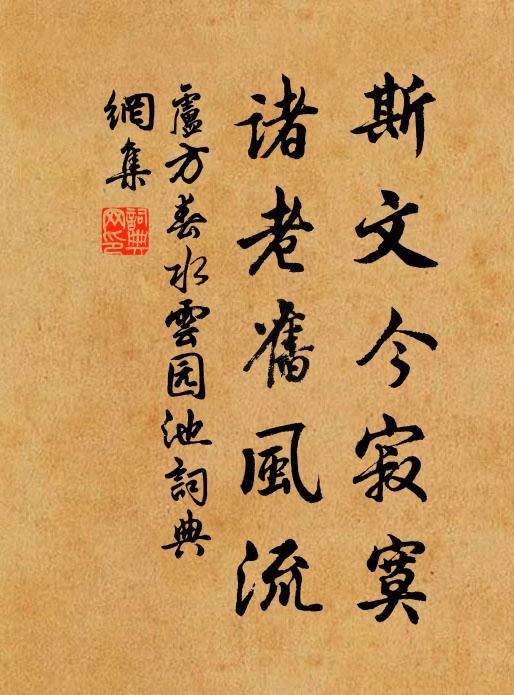 斯文今寂寞
諸老舊風流
盧方春水雲园池詞典
網集
詞典
网印